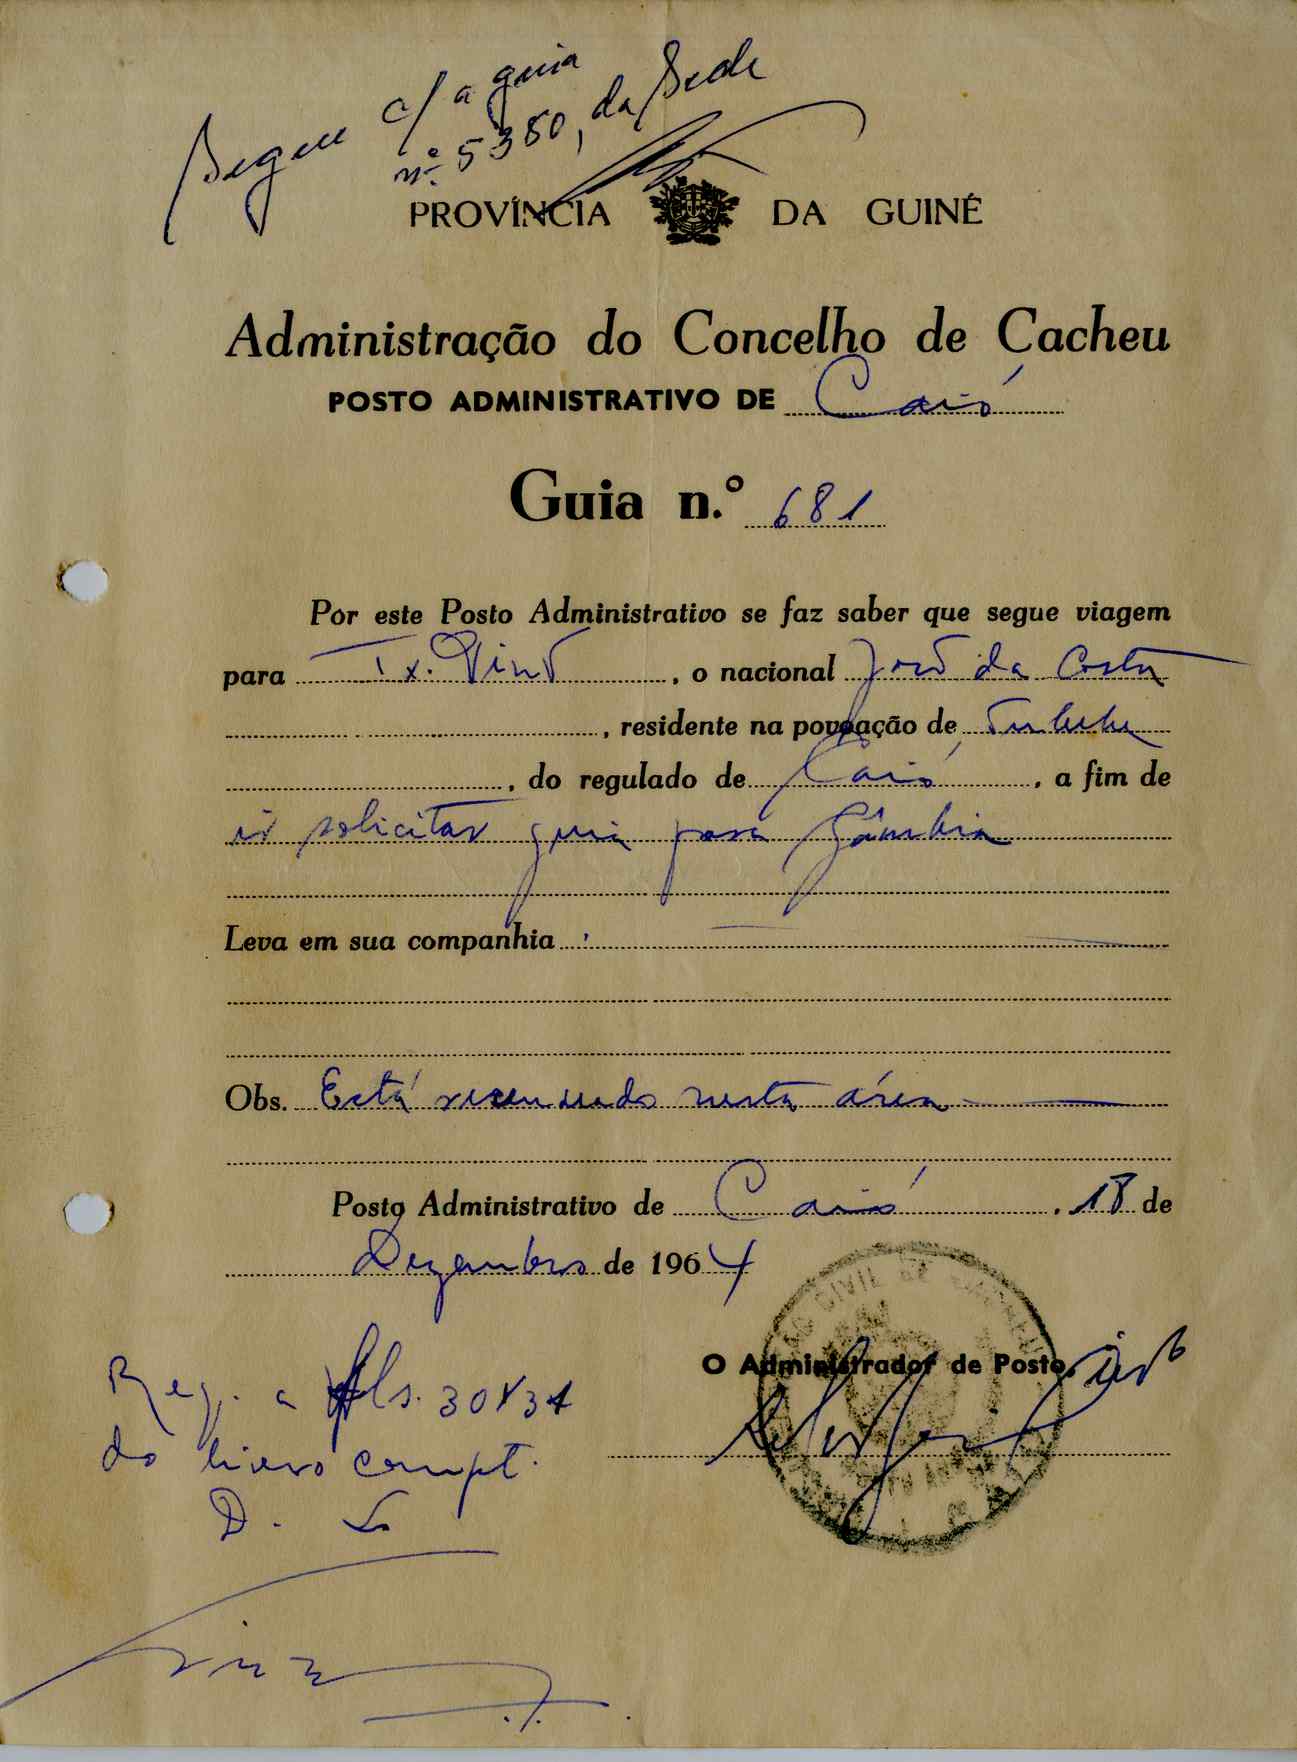 Segue c/ a guia
nº 5380, da Sede
PROVÍNCIA DA GUINÉ
Administração do Concelho de Cacheu
POSTO ADMINISTRATIVO DE Caió
Guia n.º 681
Por este Posto Administrativo se faz saber que segue viagem
para Tx. Pinto, o nacional José da Costa
, residente na povoação de
, do regulado de Caió, a fim de
ir solicitar guia para Gâmbia
Leva em sua companhia
Obs. Está recenseado nesta área
Posto Administrativo de Caió, 18 de
Dezembro de 1964
O Administrador de Posto,
Reg. a fls. 30 v 31
do livro compt.